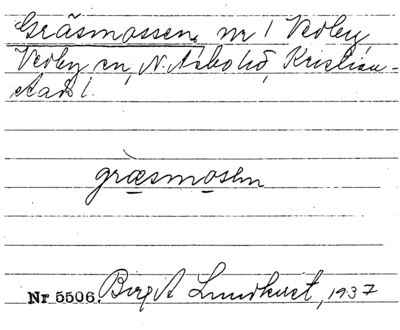 Gräsmossen, nr 1 Vedby,
Vedby sn, N. Åsbo hd, Kristian-
stads l.
græsmosen
Nr 5506. Birgit Lundkvist, 1937